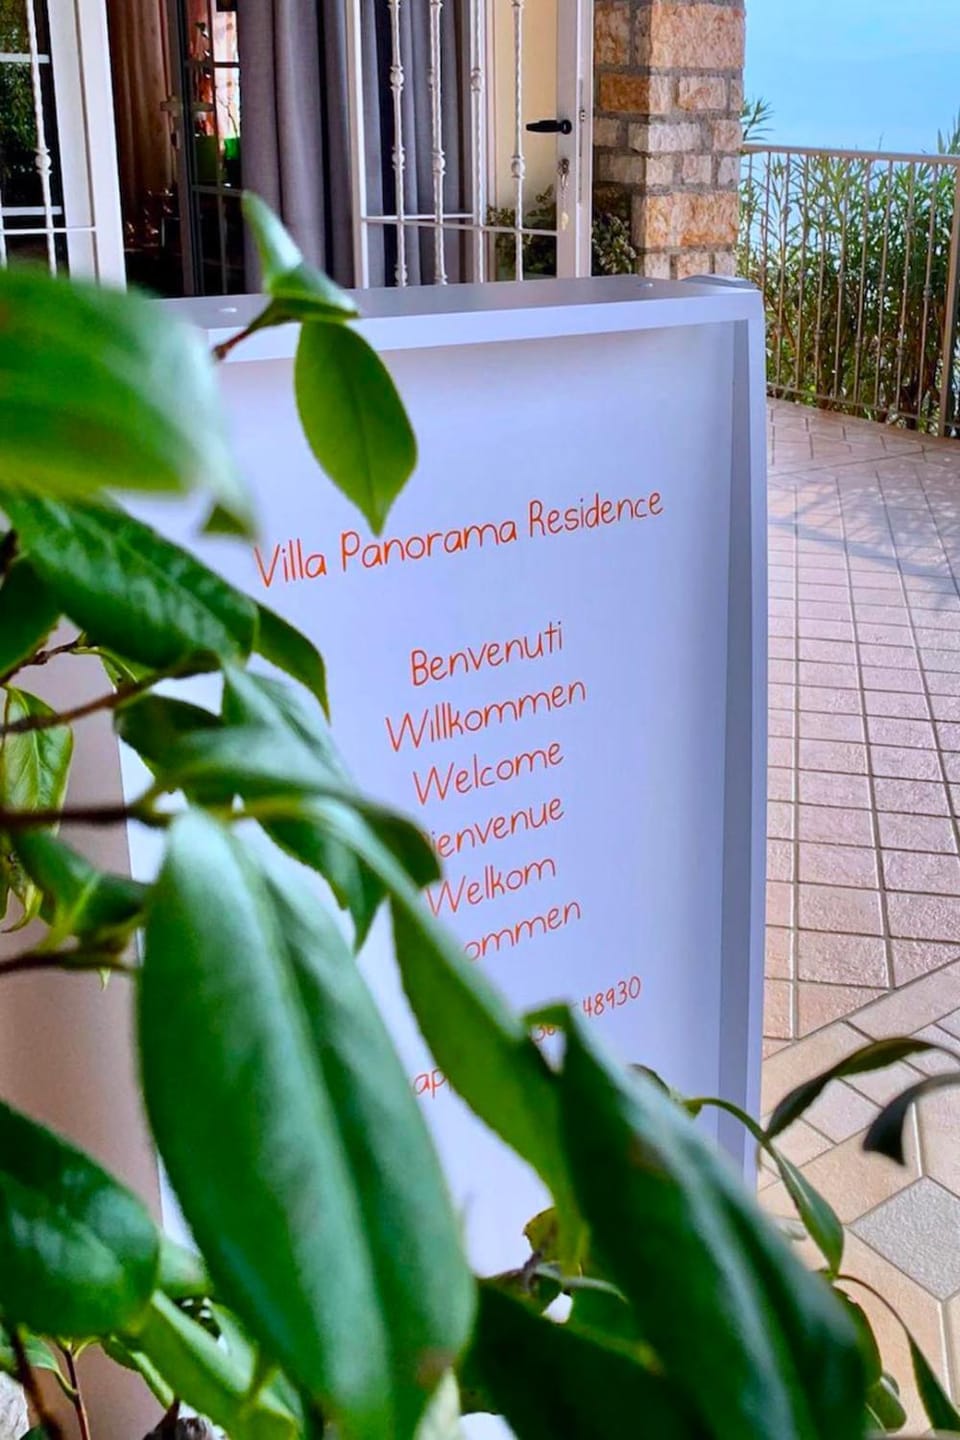 Villa Panorama Residence
Benvenuti
Willkommen
Welcome
ienvenue
Welkom
ommen
48930
ap